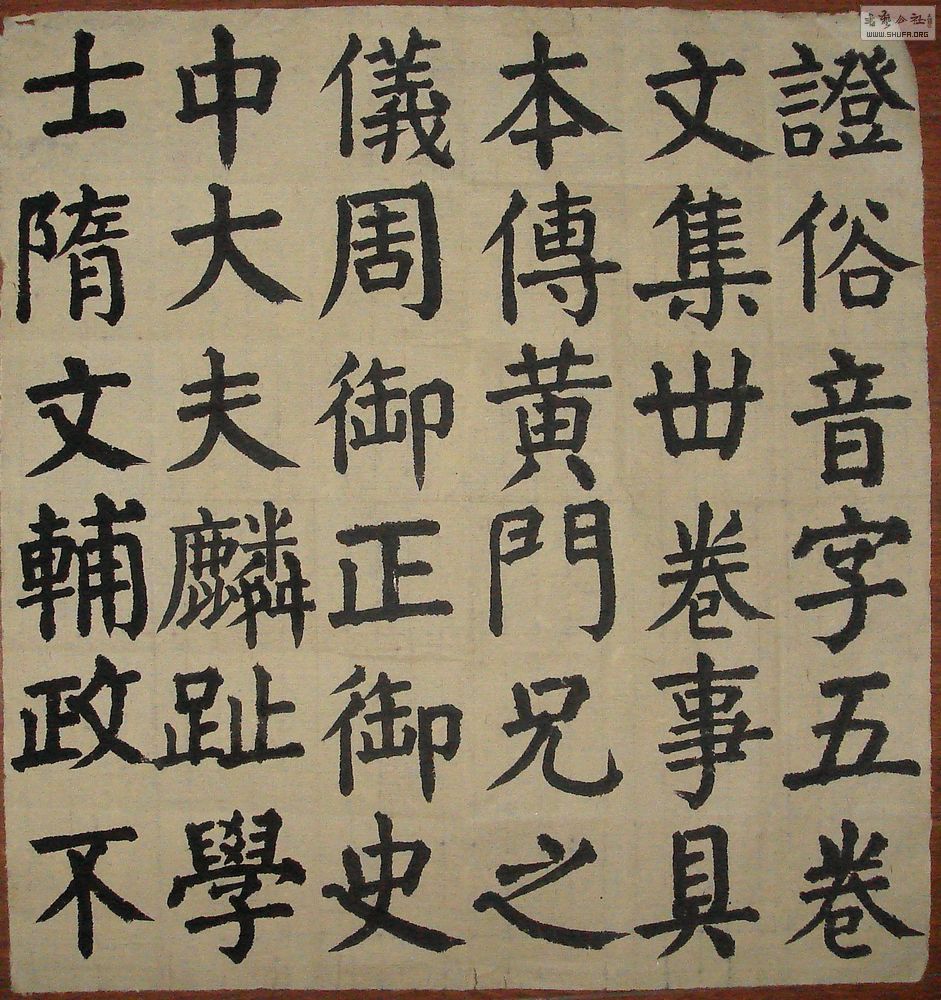 證俗音字五卷
文集丗卷事具
本傳黄門兄之
儀周御正御史
中大夫麟趾學
士隋文輔政不
WWW.SHUFA.ORG